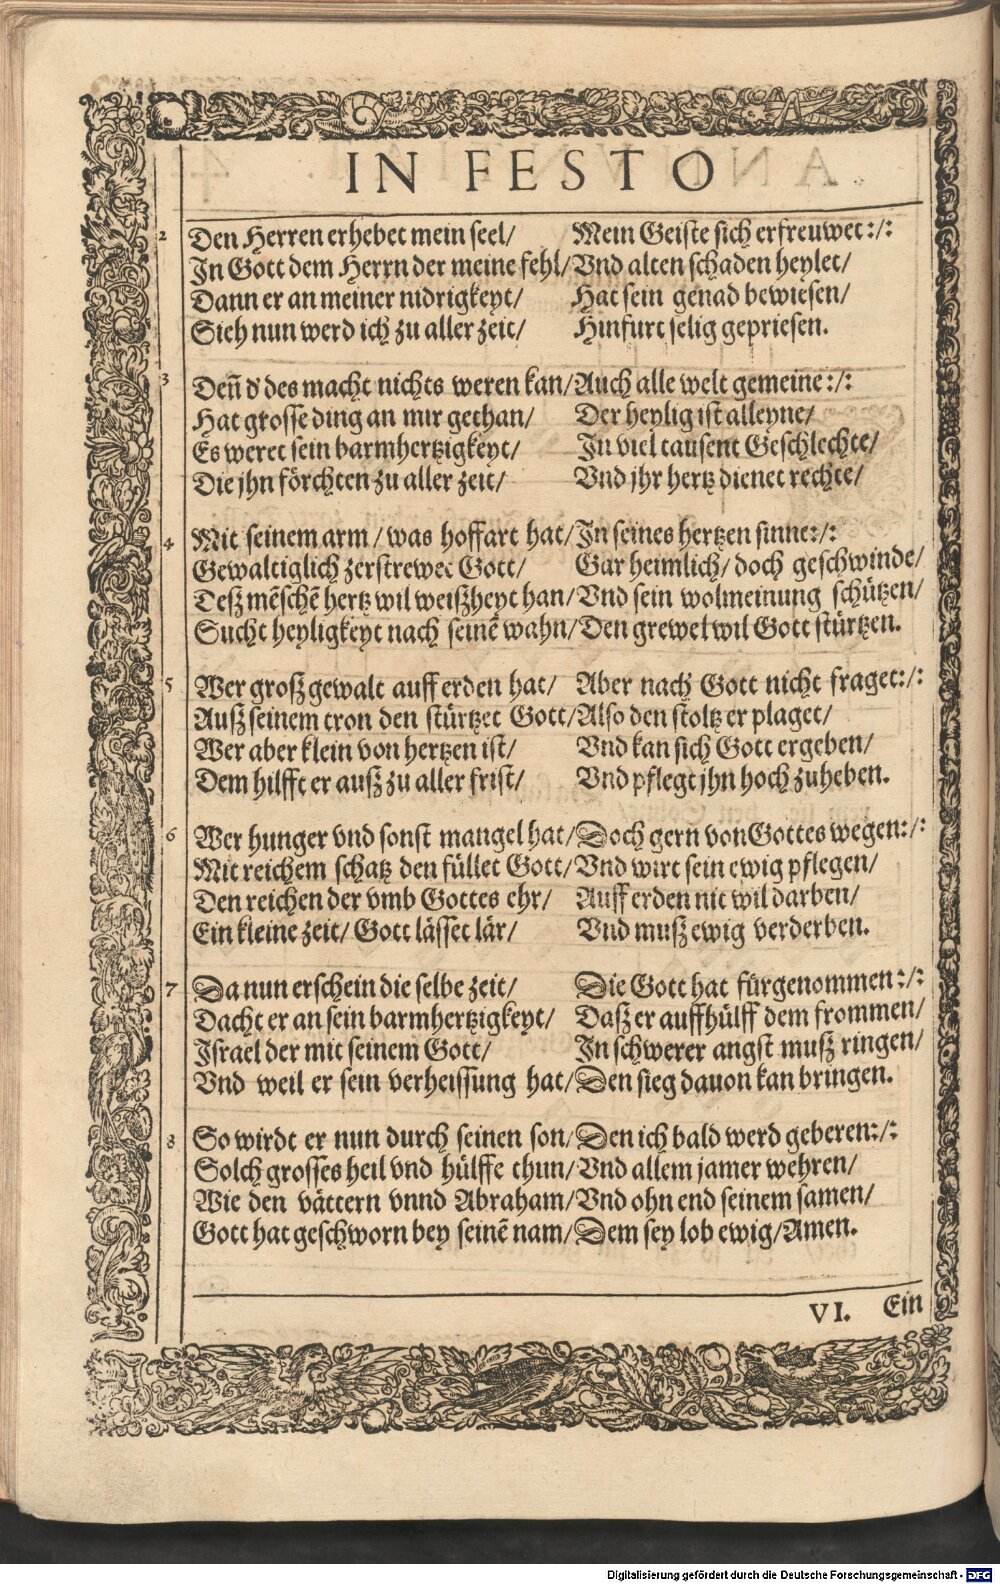 IN FESTO
2 Den Herren erhebet mein seel/ Mein Geiste sich erfreuwet:/:
In Gott dem Herrn der meine fehl/ Vnd alten schaden heylet/
Dann er an meiner nidrigkeyt/ Hat sein genad bewiesen/
Sieh nun werd ich zu aller zeit/ Hinfurt selig gepriesen.
3 Deñ d' des macht nichts weren kan/ Auch alle welt gemeine:/:
Hat grosse ding an mir gethan/ Der heylig ist alleyne/
Es weret sein barmhertzigkeyt/ In viel tausent Geschlechte/
Die jhn förchten zu aller zeit/ Vnd jhr hertz dienet rechte/
4 Mit seinem arm/ was hoffart hat/ In seines hertzen sinne:/:
Gewaltiglich zerstrewet Gott/ Gar heimlich/ doch geschwinde/
Desz mẽschẽ hertz wil weiszheyt han/ Vnd sein wolmeinung schützen/
Sucht heyligkeyt nach seinẽ wahn/ Den grewel wil Gott stürtzen.
5 Wer grosz gewalt auff erden hat/ Aber nach Gott nicht fraget:/:
Ausz seinem tron den stürtzet Gott/ Also den stoltz er plaget/
Wer aber klein von hertzen ist/ Vnd kan sich Gott ergeben/
Dem hilfft er ausz zu aller frist/ Vnd pflegt jhn hoch zuheben.
6 Wer hunger vnd sonst mangel hat/ Doch gern von Gottes wegen:/:
Mit reichem schatz den füllet Gott/ Vnd wirt sein ewig pflegen/
Den reichen der vmb Gottes ehr/ Auff erden nit wil darben/
Ein kleine zeit/ Gott lässet lär/ Vnd musz ewig verderben.
7 Da nun erschein die selbe zeit/ Die Gott hat fürgenommen:/:
Dacht er an sein barmhertzigkeyt/ Dasz er auffhülff dem frommen/
Israel der mit seinem Gott/ In schwerer angst musz ringen/
Vnd weil er sein verheissung hat/ Den sieg dauon kan bringen.
8 So wirdt er nun durch seinen son/ Den ich bald werd geberen:/:
Solch grosses heil vnd hülffe thun/ Vnd allem jamer wehren/
Wie den vättern vnnd Abraham/ Vnd ohn end seinem samen/
Gott hat geschworn bey seinẽ nam/ Dem sey lob ewig/ Amen.
VI. Ein
Digitalisierung gefördert durch die Deutsche Forschungsgemeinschaft - DFG